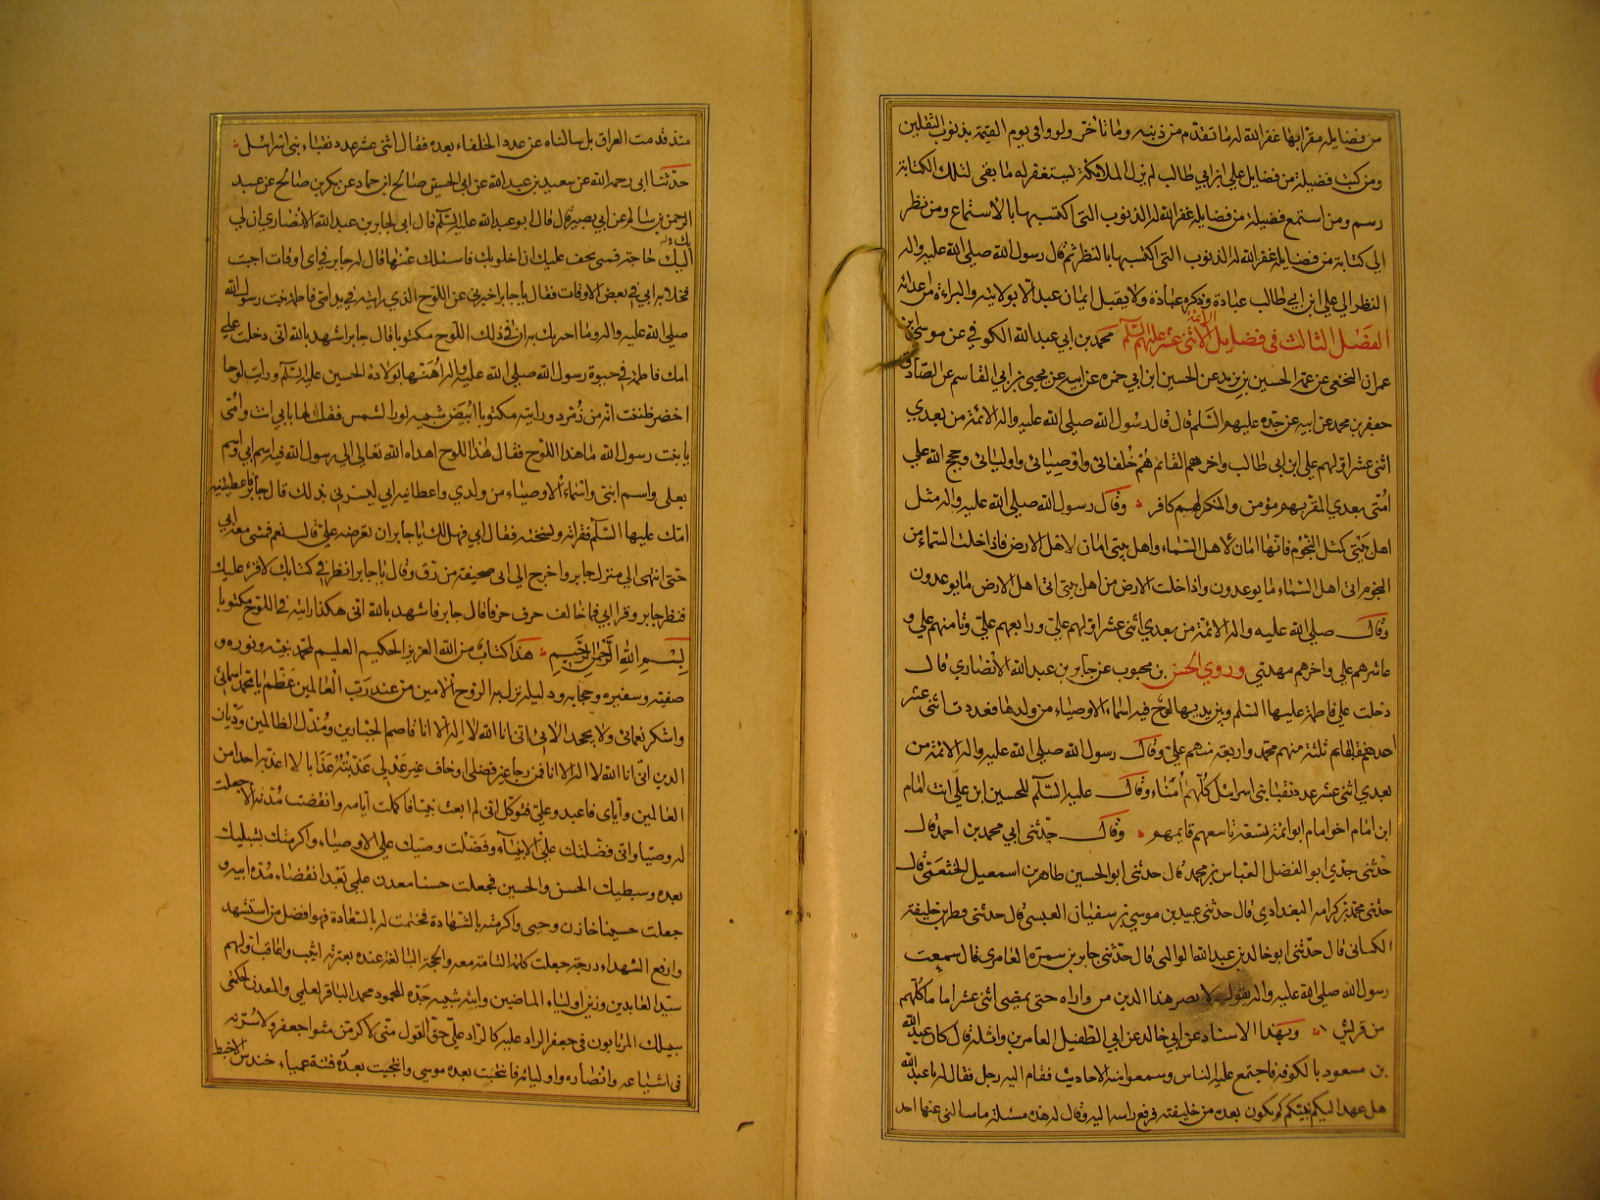 من فضايله مقرا بها غفر الله له ما تقدم من ذنبه وما تاخر ولو وافى يوم القيمة بذنوب الثقلين
ومن كتب فضيلة من فضايل علي ابن ابي طالب لم يزل الملائكة ليستغفر له ما بقى لتلك الكتابة
رسم ومن استمع فضيلة من فضايله غفر الله له الذنوب التى اكتسبها بالاستماع ومن نظر
الى كتابة من فضايله غفر الله له الذنوب التى اكتسبها بالنظر ثم قال رسول الله صلى الله عليه واله
النظر الى علي ابن ابي طالب عبادة وذكره عبادة ولا يقبل ايمان عبد الا بولايته والبراءة من اعدائه
الفصل الثالث فى فضايل الائمة الاثنى عشر عليهم السلم محمد بن ابي عبد الله الكوفي عن موسى بن
عمران النخعى عن عمه الحسين بن يزيد عن الحسين ابن ابي حمزه عن ابيه عن يحيى بن ابي القاسم عن الصادق
جعفر بن محمد عن ابيه عن جده عليهم السلم قال قال رسول الله صلى الله عليه واله الائمة من بعدي
اثنى عشر اولهم علي ابن ابى طالب واخرهم القائم هم خلفائى واوصيائى واوليائى وحجج الله على
امتى بعدي المقر بهم مؤمن والمنكر لهم كافر وقال رسول الله صلى الله عليه واله مثل
اهل بيتى كمثل النجوم فانها امان لاهل السماء واهل بيتى امان لاهل الارض فاذا خلت السماء من
النجوم اتى اهل السماء ما يوعدون واذا خلت الارض من اهل بيتى اتى اهل الارض ما يوعدون
وقال صلى الله عليه واله الائمة من بعدي اثنى عشر اولهم علي ورابعهم علي وثامنهم علي و
عاشرهم علي واخرهم مهدي وروي الحسن بن محبوب عن جابر بن عبد الله الانصاري قال
دخلت على فاطمة عليها السلم وبين يديها لوح فيه اسماء الاوصياء من ولدها فعددت اثنى عشر
احدهم القائم ثلثة منهم محمد واربعة منهم علي وقال رسول الله صلى الله عليه واله الائمة من
بعدي اثنى عشر عدد نقباء بنى اسرائيل كلهم امناء وقال عليه السلام للحسين ابن علي انت امام
ابن امام اخو امام ابو ائمة تسعة تاسعهم قايمهم وقال حدثنى ابي محمد بن احمد قال
حدثنى جدي ابو الفضل العباس بن محمد قال حدثنى ابو الحسين طاهر بن اسمعيل الخثعمي قال
حدثنى محمد بن كرامه البغدادي قال حدثنى عبيد بن موسى بن سفيان العبسى قال حدثنى فطر بن خليفة
الكنانى قال حدثنى ابو خالد بن عبد الله الوالبى قال حدثنى جابر بن سمرة العامري قال سمعت
رسول الله صلى الله عليه واله يقول لا يضر هذا الدين من واراه حتى يمضي اثنى عشر اماما كلهم
من قريش وبهذا الاسناد عن ابي خالد عن ابي الطفيل العامر بن واثلة قال كان عبد الله
بن مسعود بالكوفة فاجتمع عليه الناس وسمعوا منه الاحاديث فقام اليه رجل فقال له يا عبد الله
هل عهد اليكم نبيكم كم يكون بعده من خليفة فرفع راسه اليه وقال له هذه مسئلة ما سالنى عنها احد
منذ قدمت العراق بل سالناه عن عدد الخلفاء بعده فقال اثنى عشر عدد نقباء بنى اسرائيل
حدثنا ابى رحمه الله عن سعيد بن عبد الله عن ابى الحسن صالح ابن حماد عن بكر بن صالح عن عبد
الرحمن بن سالم عن ابي بصير قال قال ابو عبد الله عليه السلم قال ابى لجابر بن عبد الله الانصاري ان لي
اليك حاجة فمتى يخف عليك ان اخلو بك فاسئلك عنها قال له جابر في اى اوقات احببت
فخلا به ابي في بعض الاوقات فقال يا جابر اخبرني عن اللوح الذي رايته في يد امى فاطمة بنت رسول الله
صلى الله عليه واله وما اخبرتك به ان في ذلك اللوح مكتوبا قال جابر اشهد بالله انى دخلت على
امك فاطمة في حيوة رسول الله صلى الله عليه واله اهنئها بولادة الحسين عليه السلم ورايت لوحا
اخضر ظننت انه من زمرد ورايته مكتوبا ابيض شبيه نور الشمس فقلت لها بابي انت وامى
يا بنت رسول الله ما هذا اللوح فقال هذا اللوح اهداه الله تعالى الى رسول الله فيه اسم ابى واسم
بعلى واسم ابنى واسماء الاوصياء من ولدي واعطانيه ابي ليسرنى بذلك قال جابر فاعطيتنيه
امك عليها السلم فقراته ونسخته فقال ابي فهل لك يا جابر ان تعرضه على قال نعم فمشى معه ابي
حتى انتهى الى منزل جابر واخرج الى ابى صحيفة من رق وقال يا جابر انظر في كتابك لاقرء عليك
فنظر جابر وقرا ابي فما خالف حرف حرفا قال جابر فاشهد بالله انى هكذا رايته في اللوح مكتوبا
بسم الله الرحمن الرحيم هذا كتاب من الله العزيز الحكيم العليم لمحمد نبيه ونوره و
صفيه وسفيره وحجابه ودليله نزل به الروح الامين من عند رب العالمين عظم يا محمد اسمائى
واشكر نعمائى ولا يجحد الائى انى انا الله لا اله الا انا قاصم الجبارين ومذل الظالمين وديان
الدين انى انا الله لا اله الا انا فمن رجا غير فضلى او خاف غير عدلى عذبته عذابا لا اعذبه احدا من
العالمين واياى فاعبد وعلى فتوكل انى لم ابعث نبيا فاكملت ايامه وانقضت مدته الا جعلت
له وصيا وانى فضلتك على الانبياء وفضلت وصيك على الاوصياء واكرمتك بشبليك
بعده وسبطيك الحسن والحسين فجعلت حسنا معدن علمى بعد انقضاء مدة ابيه و
جعلت حسينا خازن وحيى واكرمته بالشهادة فختمت له بالسعادة فهو افضل من استشهد
وارفع الشهداء درجة جعلت كلمة التامة معه والحجة البالغة عنده بعترته اثيب واعاقب اولهم
سيد العابدين وزين اولياء الماضين وابنه شبيه جده المحمود محمد الباقر لعلمى والمعدن لحكمى
سيهلك المرتابون فى جعفر الراد عليه كالراد علي حق القول منى لاكرمن مثوا جعفر ولاسرنه
فى اشياعه وانصاره واوليائه فانتجبت بعده موسى وانتجبت بعده فتنة عمياء حندس الاخبط